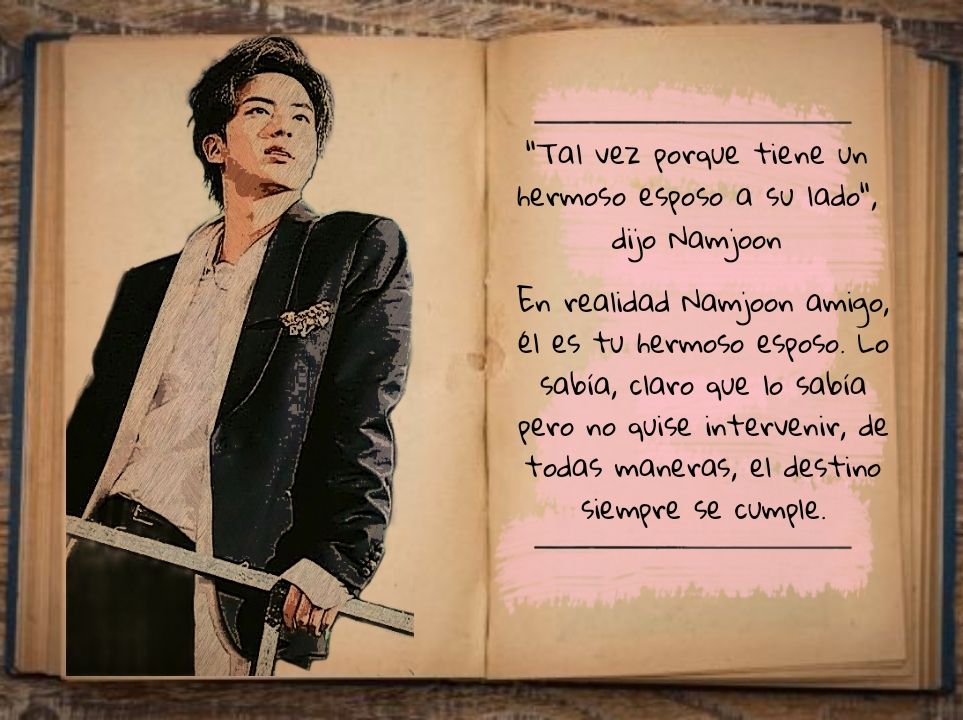 "Tal vez porque tiene un
hermoso esposo a su lado",
dijo Namjoon
En realidad Namjoon amigo,
él es tu hermoso esposo. Lo
sabía, claro que lo sabía
pero no quise intervenir, de
todas maneras, el destino
siempre se cumple.